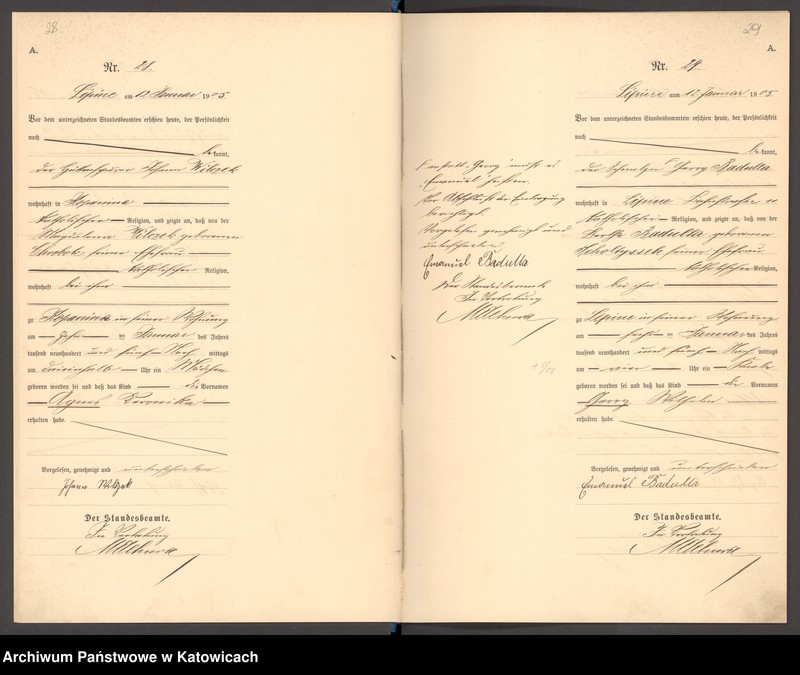 28
A.
Nr. 28.
Lipine am 12. Januar 1905
Vor dem unterzeichneten Standesbeamten erschien heute, der Persönlichkeit
nach
be kannt,
der Johann Wilczek
wohnhaft in Klopanina
katholischer Religion, und zeigte an, daß von der
Magdalena Wilczek geborenen
Chrobok seiner Ehefrau
katholischer Religion,
wohnhaft bei ihm
zu Klopanina in seiner Wohnung
am Januar des Jahres
tausend neunhundert und fünf Nach mittags
um Uhr ein Mädchen
geboren worden sei und daß das Kind die Vornamen
Agnes Veronika
erhalten habe.
Vorgelesen, genehmigt und unterschrieben
Johann Wilczek
Der Standesbeamte.
In Vertretung
29
A.
Nr. 29
Lipine am 12. Januar 1905
Vor dem unterzeichneten Standesbeamten erschien heute, der Persönlichkeit
nach
be kannt,
der Schmelzer Georg Badulla
wohnhaft in Lipine
katholischer Religion, und zeigte an, daß von der
Bertha Badulla geborenen
Scholtyssek seiner Ehefrau
katholischer Religion,
wohnhaft bei ihm
zu Lipine in seiner Wohnung
am Januar des Jahres
tausend neunhundert und fünf Nach mittags
um vier Uhr ein Knabe
geboren worden sei und daß das Kind die Vornamen
Georg Wilhelm
erhalten habe.
Vorgelesen, genehmigt und unterschrieben
Emanuel Badulla
Der Standesbeamte.
In Vertretung
anstatt "Georg" muß es
"Emanuel" heißen.
Vor Abschluß der Eintragung
berichtigt.
Vorgelesen genehmigt und
unterschrieben
Emanuel Badulla
Der Standesbeamte
In Vertretung
Archiwum Państwowe w Katowicach